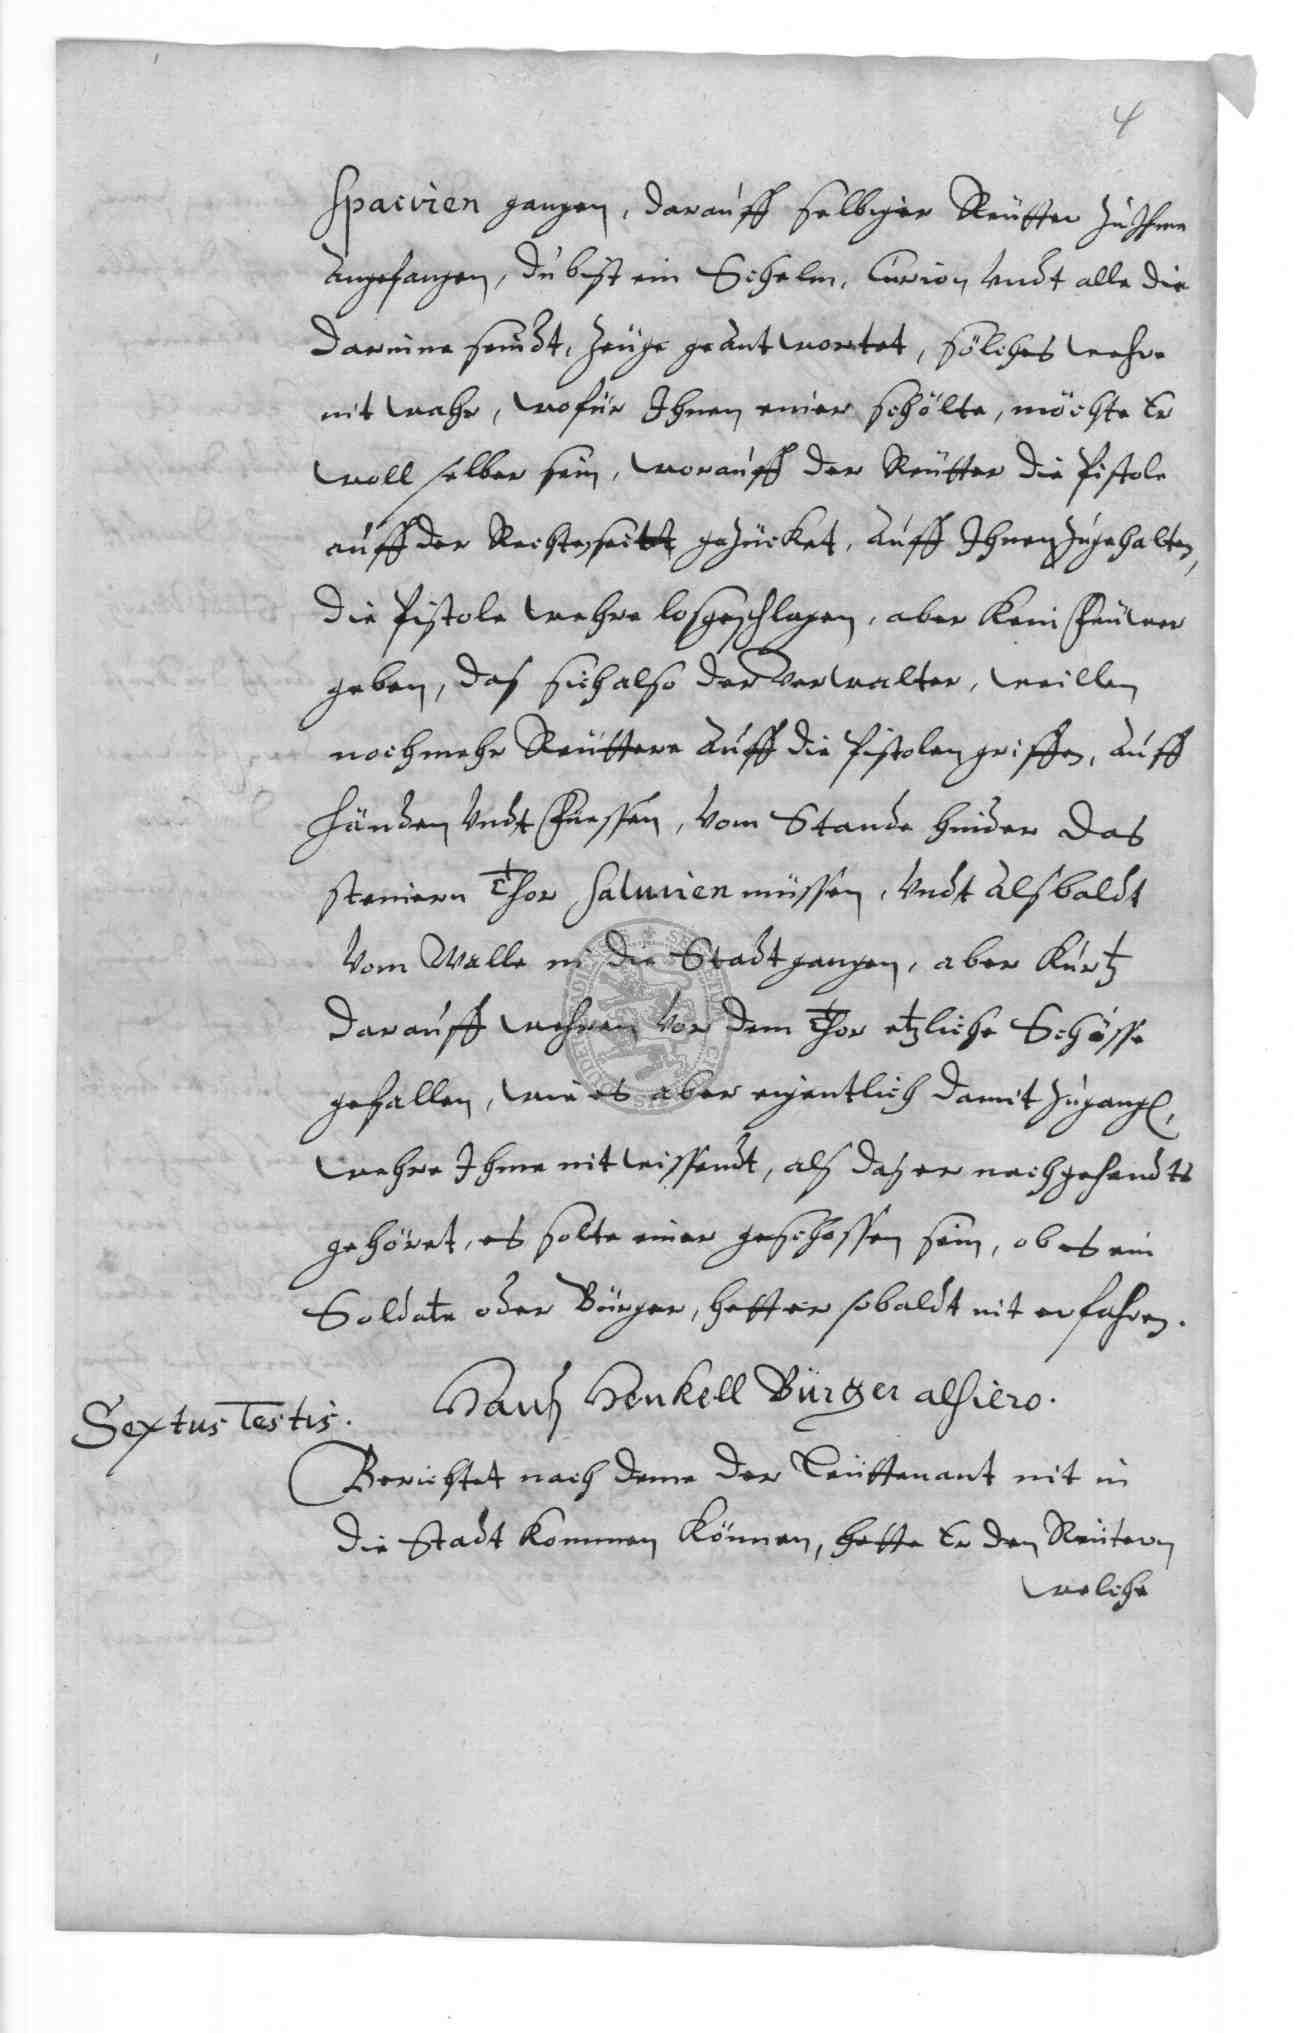 4
spacvien gangen, darauff selbiger Reütter zu Ihme
angefangen, du bist ein Schelm, Curion vndt alle die
darinne seindt, Zeüge geantwortet, sölches wehre
nit wahr, wofür Ihnen einer schölte, möchte Er
woll selber sein, worauff der Reütter die Pistole
auff der Rechten seitt gezücket, auff Ihnen zugehalten,
die Pistole wehre losgeschlagen, aber kein Feüwer
geben, das sich also der Verwalter, weillen
noch mehr Reüttere auff die Pistolen griffen, auff
Händen vndt Fuessen, vom Stande hinder das
steinern Thor salvien müssen, vndt alsbaldt
vom Walle in die Stadt gangen, aber kurtz
darauff wehren vor dem Thor etzliche Schösse
gefallen, wie es aber eigentlich damit zugang,
wehre Ihme nit wissendt, als das er nachgehendts
gehöret, es solte einer geschossen sein, ob es ein
Soldate oder Bürger, hette er sobaldt nit erfahren.
Sextus Testis. Hanß Henkell Bürger alhiero.
Berichtet nach deme der Leüttenant nit in
die Stadt kommen können, hette Er den Reütern
welche